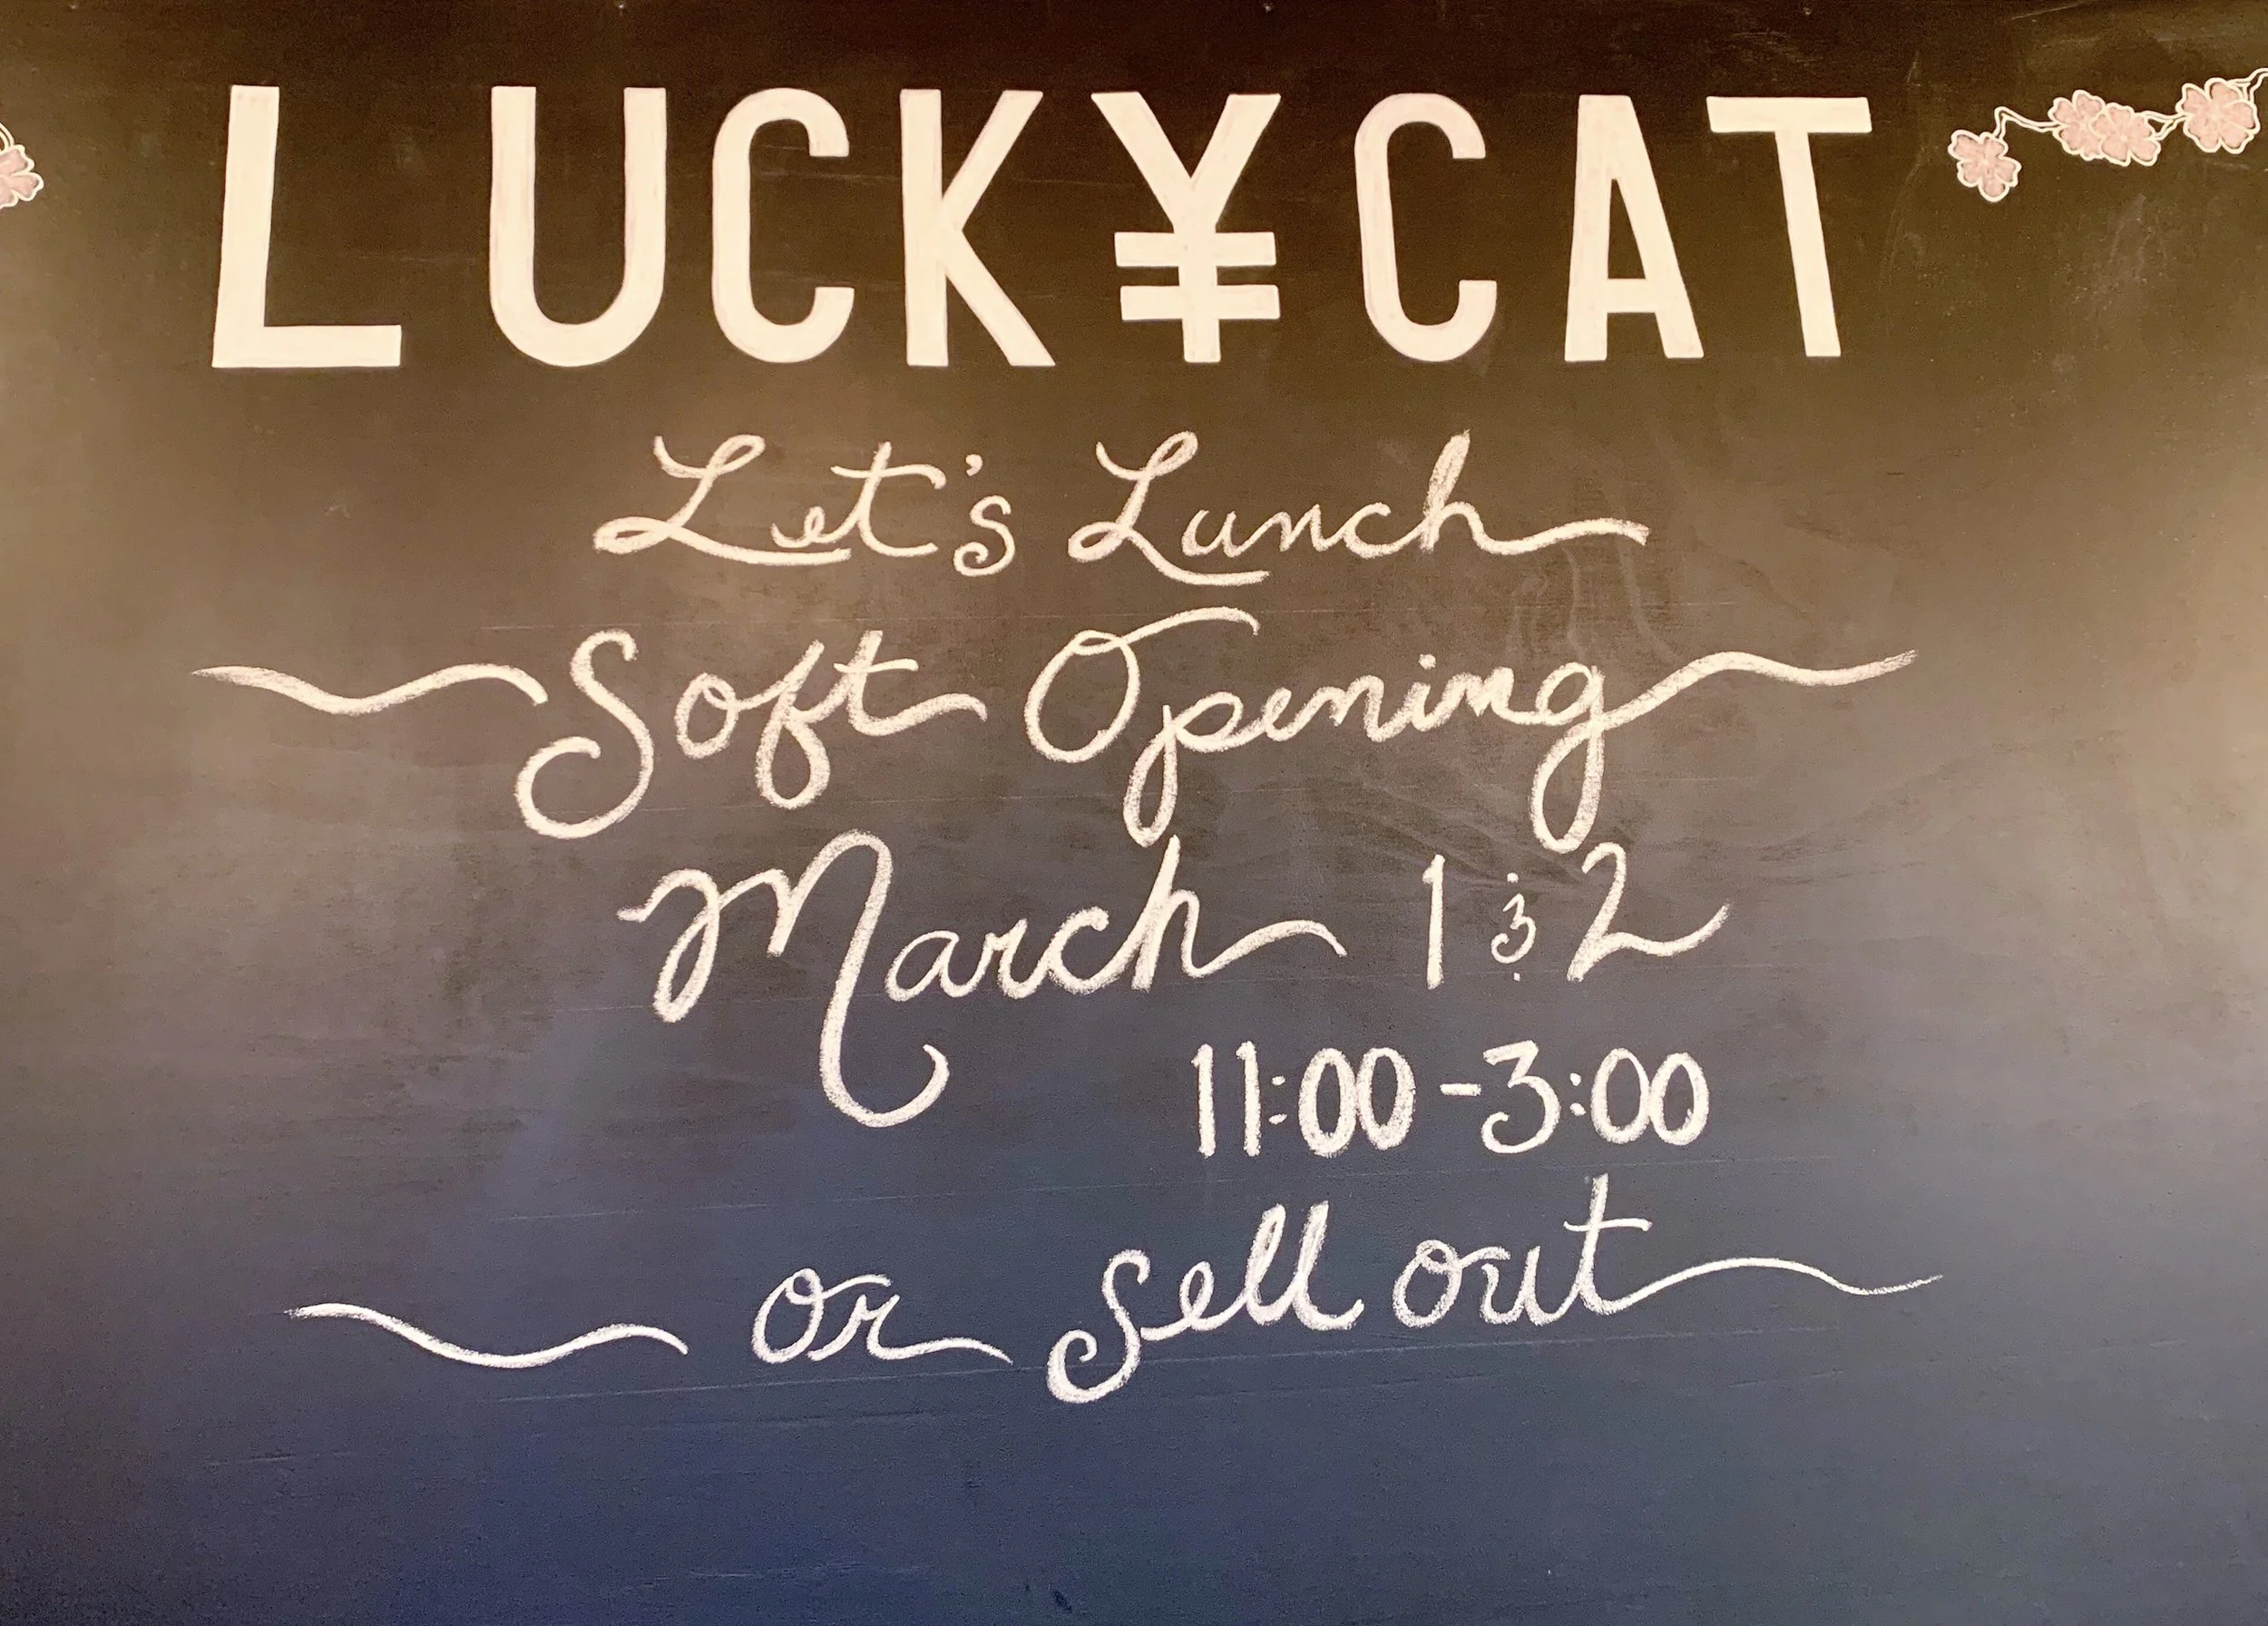 LUCK¥CAT
Let's Lunch
Soft Opening
March 1 & 2
11:00-3:00
or sell out